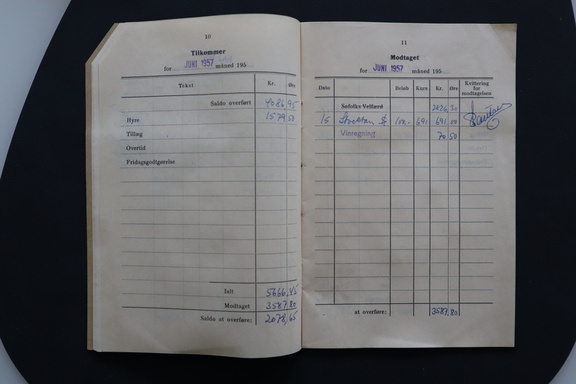 10
Tilkommer
for JUNI 1957 måned 195
Tekst Kr. Øre
Saldo overført 4086,95
Hyre 1579 50
Tillæg
Overtid
Fridagsgodtgørelse
Ialt 5666,45
Modtaget 3587,80
Saldo at overføre: 2078,65
11
Modtaget
for JUNI 1957 måned 195
Dato Beløb Kurs Kr. Øre Kvittering for modtagelsen
Sofolks Velfærd
15 Stockton $ 100.- 691 691,00
Vinregning 70 50
at overføre: 3587,80